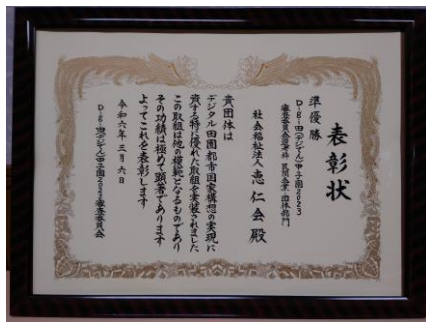 表彰状
準優勝
Digi田(デジでん)甲子園2023
審査委員会選考枠 民間企業・団体部門
社会福祉法人 恵仁会 殿
貴団体は
デジタル田園都市国家構想の実現に
資する特に優れた取組を実装されました
この取組は他の模範となるものであり
その功績は極めて顕著であります
よってこれを表彰します
令和六年三月六日
Digi田(デジでん)甲子園2023審査委員会